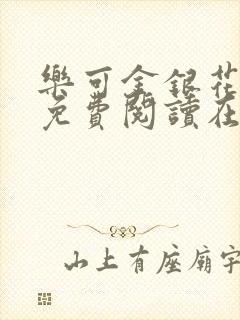 樂可金銀花
免費閱讀在
山上有座廟宇